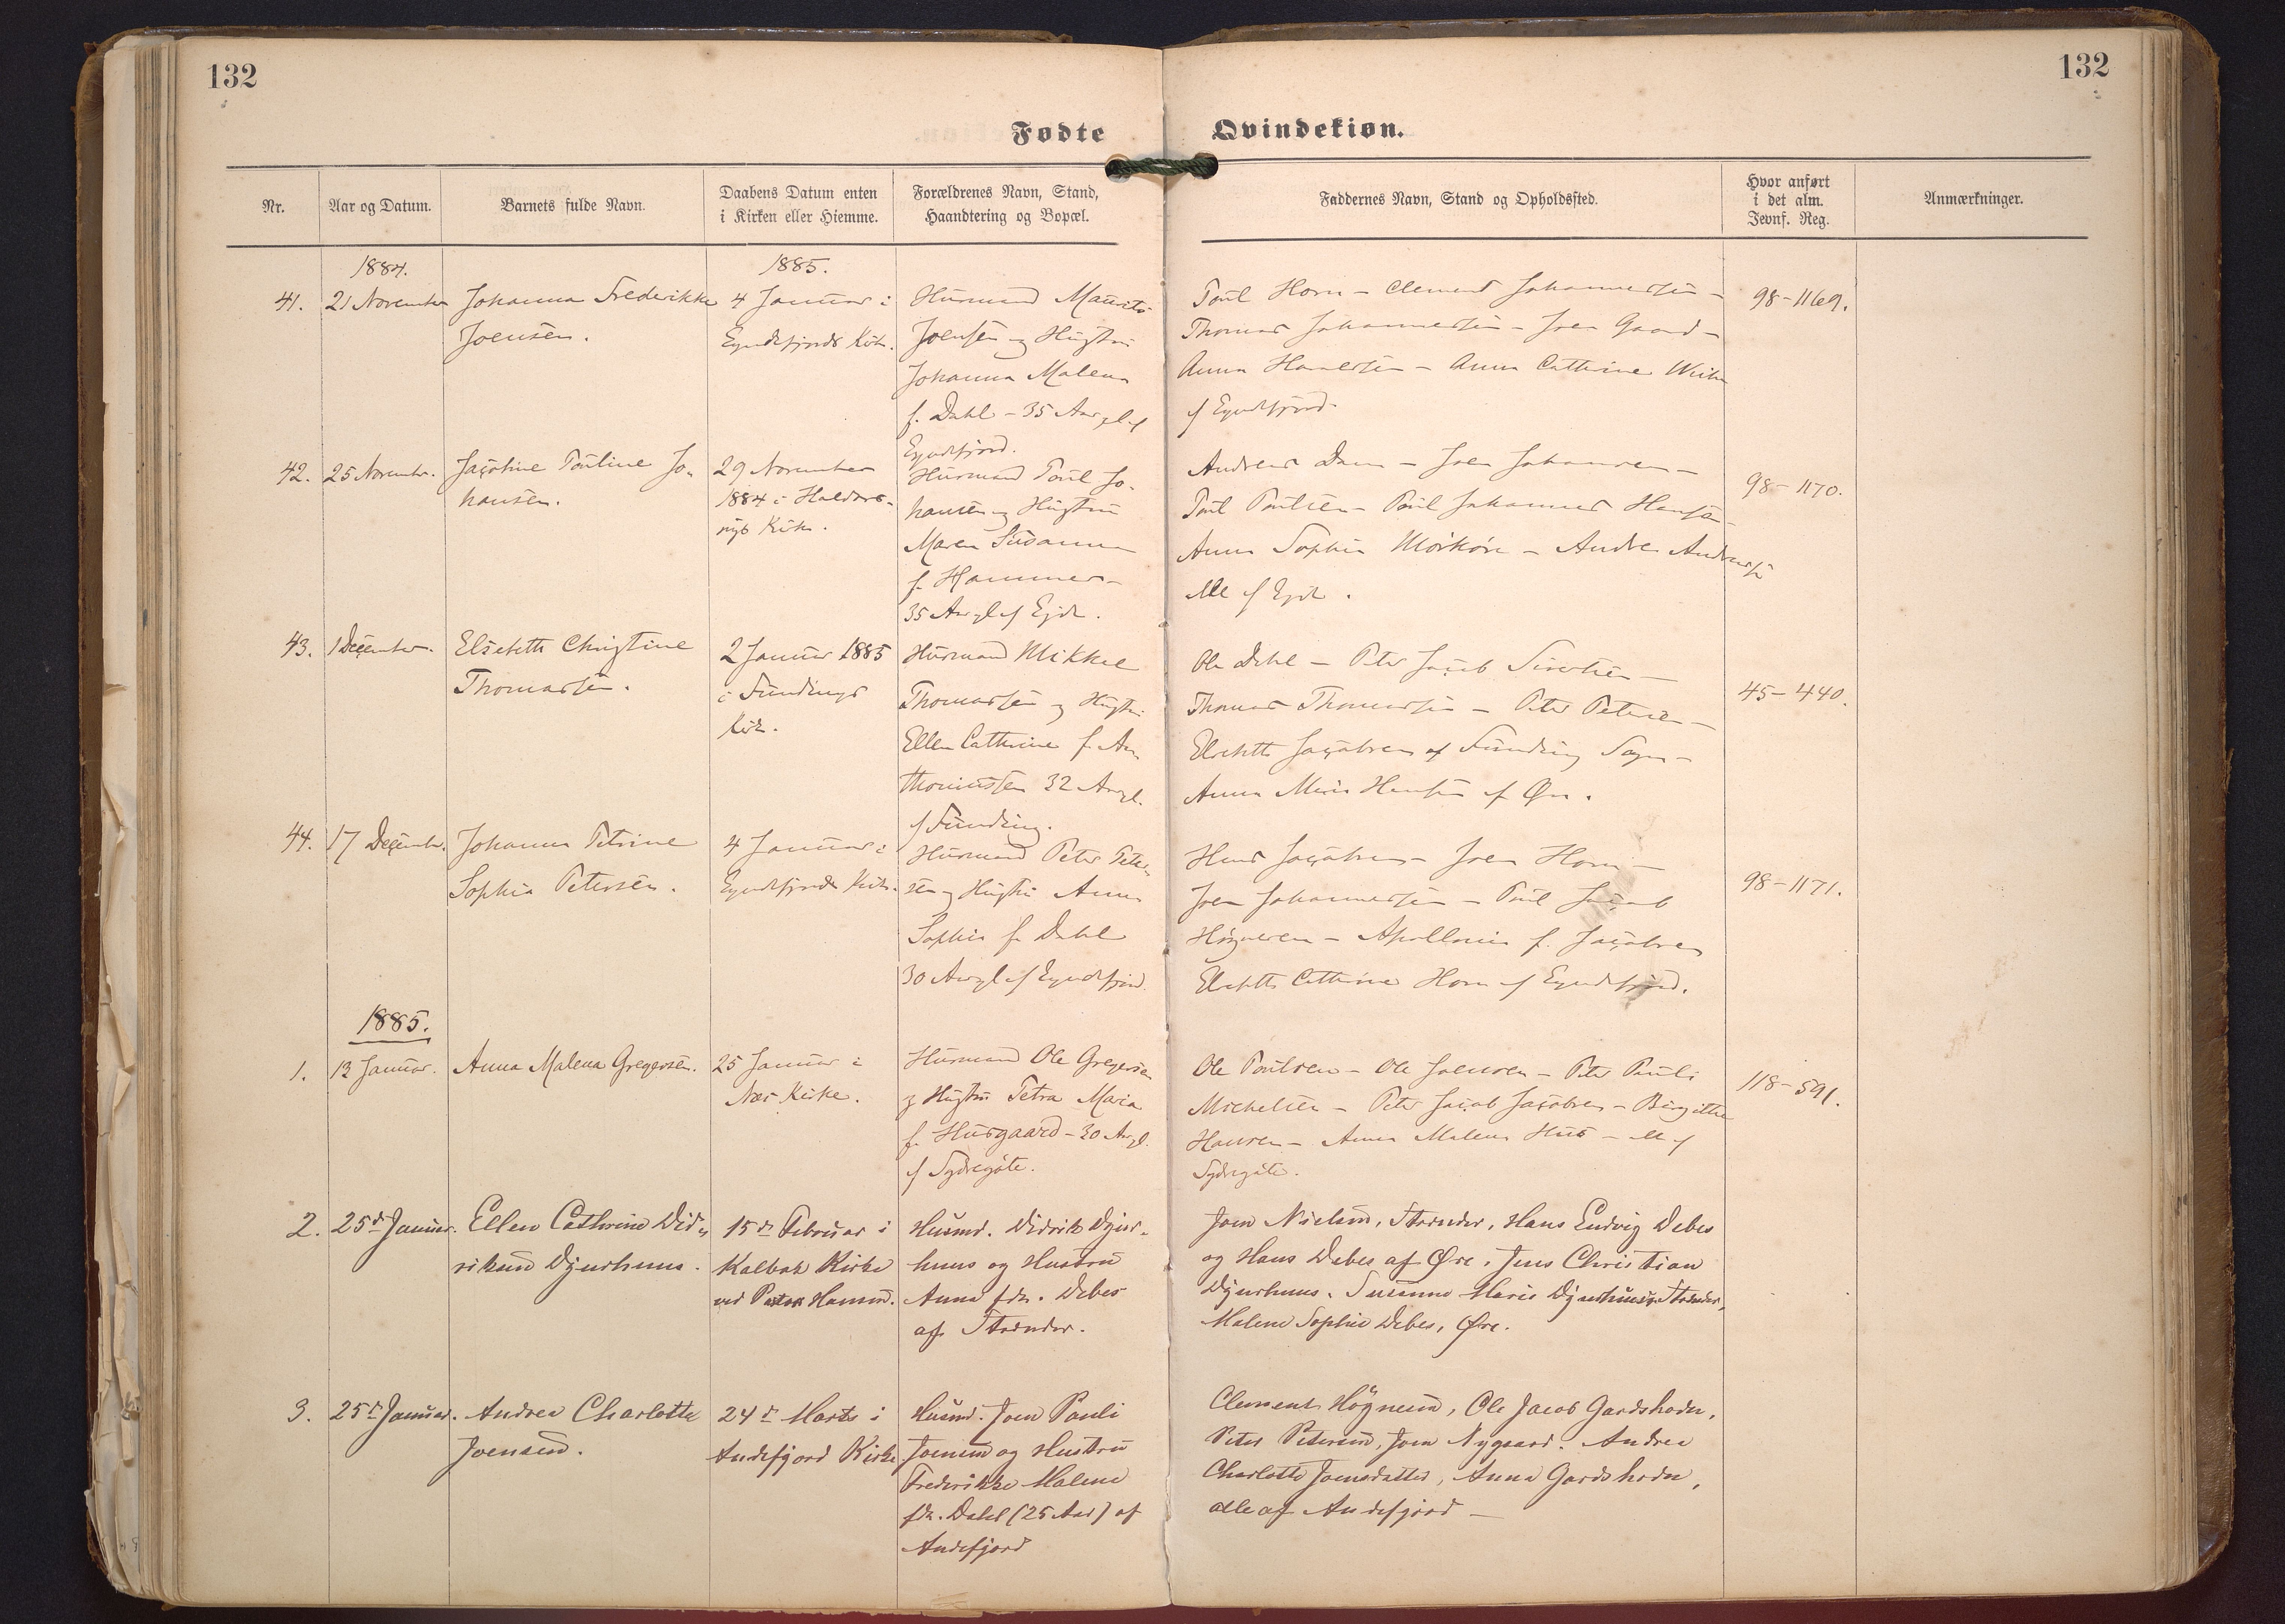 132
132
Fødte Qvindekiøn.
Nr.
Aar og Datum.
Barnets fulde Navn.
Daabens Datum enten
i Kirken eller Hiemme.
Forældrenes Navn, Stand,
Haandtering og Bopæl.
Faddernes Navn, Stand og Opholdssted.
Hvor anført
i det alm.
Jevnf. Reg.
Anmærkninger.
1884.
1885.
41.
21 November
Johanna Frederikke
Joensen.
4 Januar i
Eyndefjords Kirke.
Huusmand Maurits
Joensen og Hustru
Johanna Malena
f. Dahl - 35 Aar gl. af
Eyndefjord.
Poul Horn - Clement Johannessen -
Thomas Johannessen - Joen Gaard -
Anna - Anna Cathrine
af Eyndefjord.
98-1169.
42.
25 November.
Jacobine Pouline Jo-
hansen.
29 November
1884 i Haldors-
vigs Kirke.
Huusmand Poul Jo-
hansen og Hustru
Maren Susanna
f. Hammer -
35 Aar gl. af Ejde.
Andreas Dam - Joen Johansen -
Poul Poulsen - Poul Johannes Hansen -
Anna Sophia Mörköre - Andrea Andreasen
alle af Ejde.
98-1170.
43.
1 December.
Elsebeth Christine
Thomassen.
2 Januar 1885
i Fundings
Kirke.
Huusmand Mikkel
Thomassen og Hustru
Ellen Cathrine f. An
thoniussen 32 Aar gl.
af Funding.
Ole Dahl - Peter Jacob Sivertsen -
Thomas Thomassen - Peter Petersen -
Elsebeth Jacobsen af Funding Sogn -
Anna Maria Hansen af Øre.
45-440.
44.
17 December.
Johanna Petrine
Sophia Petersen.
4 Januar i
Eyndefjords Kirke.
Huusmand Peter Peter
sen og Hustru Anna
Sophia f. Dahl
30 Aar gl. af Eyndefjord.
Hans Jacobsen - Joen Horn -
Joen Johannessen - Poul Jacob
Högnesen - Apollonia f. Jacobsen
Elsebeth Cathrine Horn af Eyndefjord.
98-1171.
1885.
1.
13 Januar.
Anna Malena Gregersen.
25 Januar i
Næs Kirke.
Huusmand Ole Gregersen
og Hustru Petra Maria
f. Husgaard - 30 Aar gl.
af Sydregöte.
Ole Poulsen - Ole Joensen - Peter Pauli
Michelsen - Peter Jacob Jacobsen - Birgitte
Hansen - Anna Malena Hus - alle af
Sydregöte.
118-591.
2.
25de Januar.
Ellen Cathrine Did-
riksen Djurhuus.
15de Februar i
Kalbak Kirke
ved Pastor Hansen.
Husmd. Didrik Djur-
huus og Hustru
Anna fdt. Debes
af Strænder.
Joen Nielsen, Strænder, Hans Ludvig Debes
og Hans Debes af Øre, Jens Christian
Djurhuus, Susanne Marie Djurhuus, Strænder,
Malene Sophie Debes, Øre.
3.
25de Januar.
Andrea Charlotte
Joensen.
24de Marts i
Andefjord Kirke
Husmd. Joen Pauli
Joensen og Hustru
Frederikke Malene
fdt. Dahl (25 Aar) af
Andefjord
Clement Högnesen, Ole Jacob Gardshodn,
Peter Petersen, Joen Nygaard. Andrea
Charlotte Joensdatter, Anna Gardshodn,
alle af Andefjord -